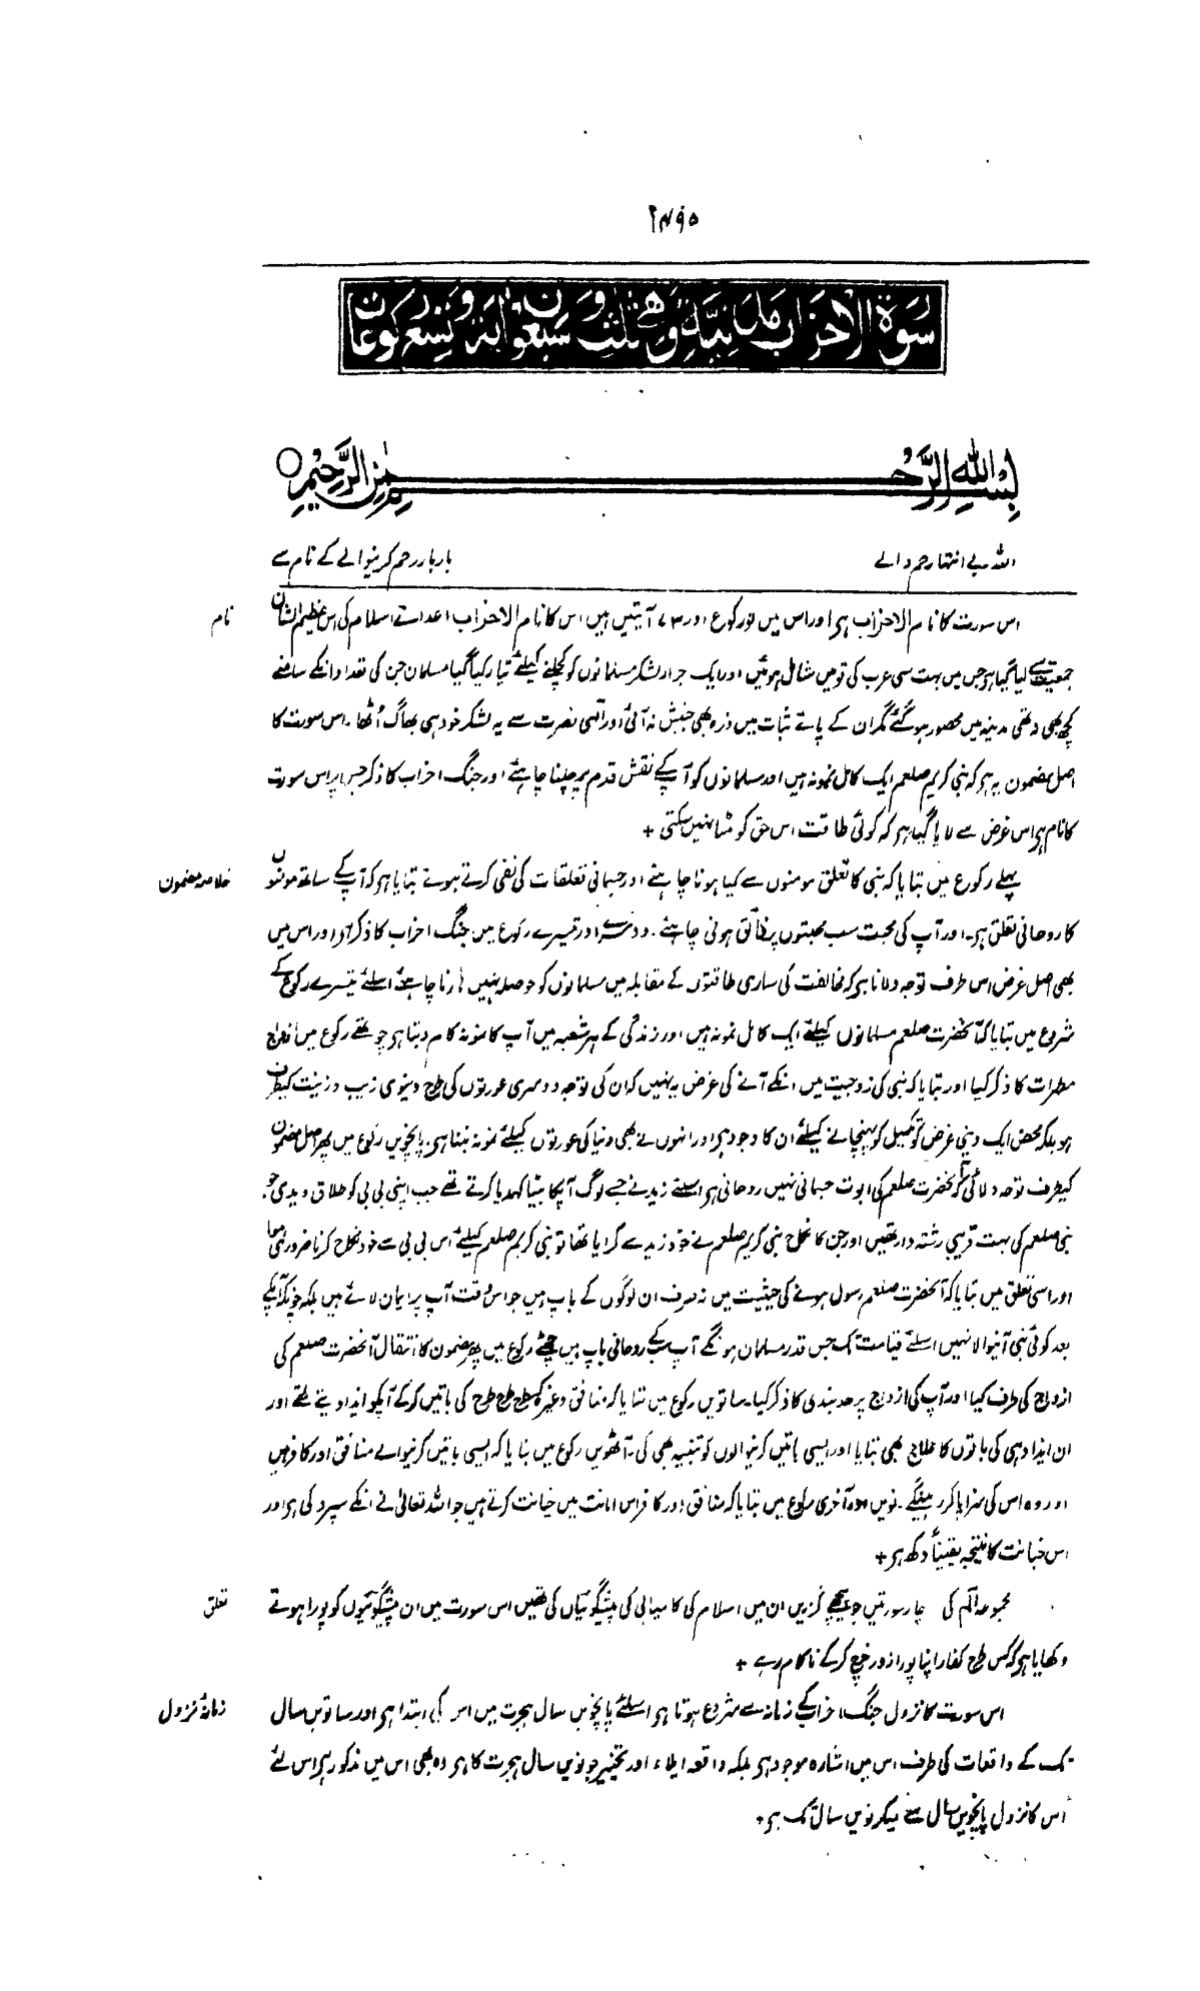 ۱۴۹۵
سورة الاحزاب مدنیة وهی ثلث و سبعون اٰیة و تسع رکوعات
بِسْمِ اللهِ الرَّحْمٰنِ الرَّحِیْمِ
اللہ بے انتہا رحم والے بار بار رحم کرنیوالے کے نام سے
نام
اس سورت کا نام الاحزاب ہی اور اس میں نو رکوع اور ۷۳ آیتیں ہیں اس کا نام الاحزاب اعدائے اسلام کی اس عظیم الشان
جمعیت سے لیا گیا ہو جس میں بہت سی عرب کی قومیں شامل ہوئیں اور ایک جرار لشکر مسلمانوں کو کچلنے کیلئے تیار کیا گیا مسلمان جن کی تعداد انکے سامنے
کچھ بھی نہ تھی مدینہ میں محصور ہو گئے مگر ان کے پائے ثبات میں ذرہ بھی جنبش نہ آئی اور آلٰہی نصرت سے یہ لشکر خود ہی بھاگ اُٹھا۔ اس سورت کا
اصل مضمون یہ ہو کہ نبی کریم صلعم ایک کامل نمونہ ہیں اور مسلمانوں کو آپکے نقش قدم پر چلنا چاہئے اور جنگ احزاب کا ذکر جس پر اس سورت
کا نام ہو اس غرض سے لایا گیا ہو کہ کوئی طاقت اس حق کو مٹا نہیں سکتی +
خلاصہ مضمون
پہلے رکوع میں بتایا کہ نبی کا تعلق مومنوں سے کیا ہونا چاہئے اور جسمانی تعلقات کی نفی کرتے ہوئے بتایا ہو کہ آپ کے ساتھ مومنوں
کا روحانی تعلق ہی۔ اور آپ کی محبت سب محبتوں پر فائق ہونی چاہئے۔ دوسرے اور تیسرے رکوع میں جنگ احزاب کا ذکر ہی اور اس میں
بھی اصل غرض اس طرف توجہ دلانا ہی کہ مخالفت کی ساری طاقتوں کے مقابلہ میں مسلمانوں کو حوصلہ نہیں ہارنا چاہئے اسلئے تیسرے رکوع کے
شروع میں بتایا کہ آنحضرت صلعم مسلمانوں کیلئے ایک کامل نمونہ ہیں اور زندگی کے ہر شعبہ میں آپ کا نمونہ کام دیتا ہو چوتھے رکوع میں ازواج
مطہرات کا ذکر کیا اور بتایا کہ نبی کی زوجیت میں انکے آنے کی غرض یہ نہیں کہ ان کی توجہ دوسری عورتوں کی طرح دنیوی زیب و زینت کیطرف
ہو بلکہ محض ایک دینی غرض کو تکمیل کو پہنچانے کیلئے ان کا وجود ہی اور انہوں نے بھی دنیا کی عورتوں کیلئے نمونہ بننا ہی۔ پانچویں رکوع میں پھر اصل مضمون
کیطرف توجہ دلائی کہ آنحضرت صلعم کی ابوت جسمانی نہیں روحانی ہو اسلئے زید نے جسے لوگ آپکا بیٹا کہدیا کرتے تھے جب اپنی بی بی کو طلاق دیدی جو
نبی صلعم کی بہت قریبی رشتہ دار تھیں اور جن کا نکاح نبی کریم صلعم نے خود زید سے کرایا تھا تو نبی کریم صلعم کیلئے اس بی بی سے خود نکاح کرنا ضروری ہوا
اور اسی تعلق میں بتایا کہ آنحضرت صلعم رسول ہونے کی حیثیت میں نہ صرف ان لوگوں کے باپ ہیں جو اس وقت آپ پر ایمان لائے ہیں بلکہ چونکہ آپکے
بعد کوئی نبی آنیوالا نہیں اسلئے قیامت تک جس قدر مسلمان ہونگے آپ سب کے روحانی باپ ہیں چھٹے رکوع میں پھر مضمون کا انتقال آنحضرت صلعم کی
ازواج کی طرف کیا اور آپ کی ازواج پر حد بندی کا ذکر کیا۔ ساتویں رکوع میں بتایا کہ منافق وغیرہ کس طرح طرح طرح کی باتیں کرکے آپکو ایذا دیتے تھے اور
ان ایذا دہی کی باتوں کا علاج بھی بتایا اور ایسی باتیں کرنیوالوں کو تنبیہ بھی کی۔ آٹھویں رکوع میں بتایا کہ ایسی باتیں کرنیوالے منافق اور کافر ہیں
اور وہ اس کی سزا پا کر رہینگے۔ نویں اور آخری رکوع میں بتایا کہ منافق اور کافر اس امانت میں خیانت کرتے ہیں جو اللہ تعالیٰ نے انکے سپرد کی ہی اور
اس خیانت کا نتیجہ یقیناً دکھ ہو +
تعلق
مجموعہ الٓمٓ کی چار سورتیں جو پیچھے گزریں ان میں اسلام کی کامیابی کی پیشگوئیاں کی تھیں اس سورت میں ان پیشگوئیوں کو پورا ہوتے
دکھایا ہو کہ کس طرح کفار اپنا پورا زور خرچ کرکے ناکام رہے +
زمانۂ نزول
اس سورت کا نزول جنگ احزاب کے زمانہ سے شروع ہوتا ہو اسلئے پانچویں سال ہجرت میں اس کی ابتدا ہی اور ساتویں سال
تک کے واقعات کی طرف اس میں اشارہ موجود ہی بلکہ واقعہ ایلاء اور تخییر جو نویں سال ہجرت کا ہو وہ بھی اس میں مذکور ہی اس لئے
اُس کا نزول پانچویں سال سے لیکر نویں سال تک ہو +